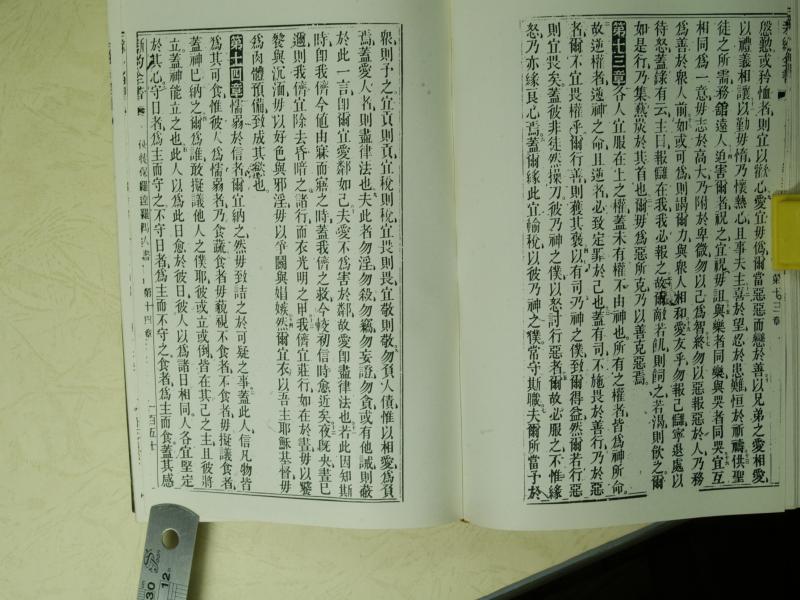 慇懃或矜恤者則宜以歡心愛宜毋僞爾當惡惡而戀於善以兄弟之愛相愛
以禮義相讓以勤毋惰乃懷熱心且事夫主喜於望忍於患難恒於祈禱供聖
徒之所需務舘遠人迫害爾者祝之宜祝毋詛與樂者同樂與哭者同哭宜互
相同爲一意毋志於高大乃附於卑微勿以己爲智終勿以惡報惡於人乃務
爲善於衆人前如或可爲則竭爾力與衆人相和愛友乎勿報己讎寧退處以
待怒蓋錄有云主曰報讎在我我必報之故爾敵若飢則飼之若渴則飲之爾
如是行乃集熱炭於其首也爾毋爲惡所克乃以善克惡焉
第十三章各人宜服在上之權蓋未有權不由神也所有之權者皆爲神所命
故逆權者逆神之命且逆者必致定罪於己也蓋有司不施畏於善行乃於惡
者爾不宜畏權乎爾行善則獲其褒以有司乃神之僕致爾得益然爾若行惡
則宜畏矣蓋彼非徒然操刀彼乃神之僕以怒討行惡者爾故必服之不惟緣
怒乃亦緣良心焉蓋爾緣此宜輸稅以彼乃神之僕當守斯職夫爾所當予於
衆則予之宜貢則貢宜稅則稅宜畏則畏宜敬則敬勿負人債惟以相愛爲負
焉蓋愛人者則盡律法也夫此者勿淫勿殺勿竊勿妄證勿貪或有他誡則蔽
於此一言卽爾宜愛鄰如己夫愛不爲害於鄰故愛卽盡律法也若此因知斯
時卽我儕今值由寐而寤之時蓋我儕之救今較初信時愈近矣夜旣央晝已
邇則我儕宜除去昏暗之諸行而衣光明之甲我儕宜莊行如在於晝毋以饕
餮與沉湎毋以好色與邪淫毋以爭鬭與娼嫉然爾宜衣以吾主耶穌基督毋
爲肉體預備致成其慾也
第十四章懦弱於信者爾宜納之然毋致詰之於可疑之事蓋此人信凡物皆
爲其可食惟彼人爲懦弱者乃食蔬食者毋藐視不食者不食者毋擬議食者
蓋神已納之爾爲誰敢擬議他人之僕耶彼或立或倒皆在其己之主且彼將
立蓋神能立之也此人以爲此日愈於彼日彼人以爲諸日相同人各宜堅定
於其心守日者爲主而守之不守日者爲主而不守之食者爲主而食蓋其感
第十四章
一百五十
30
12